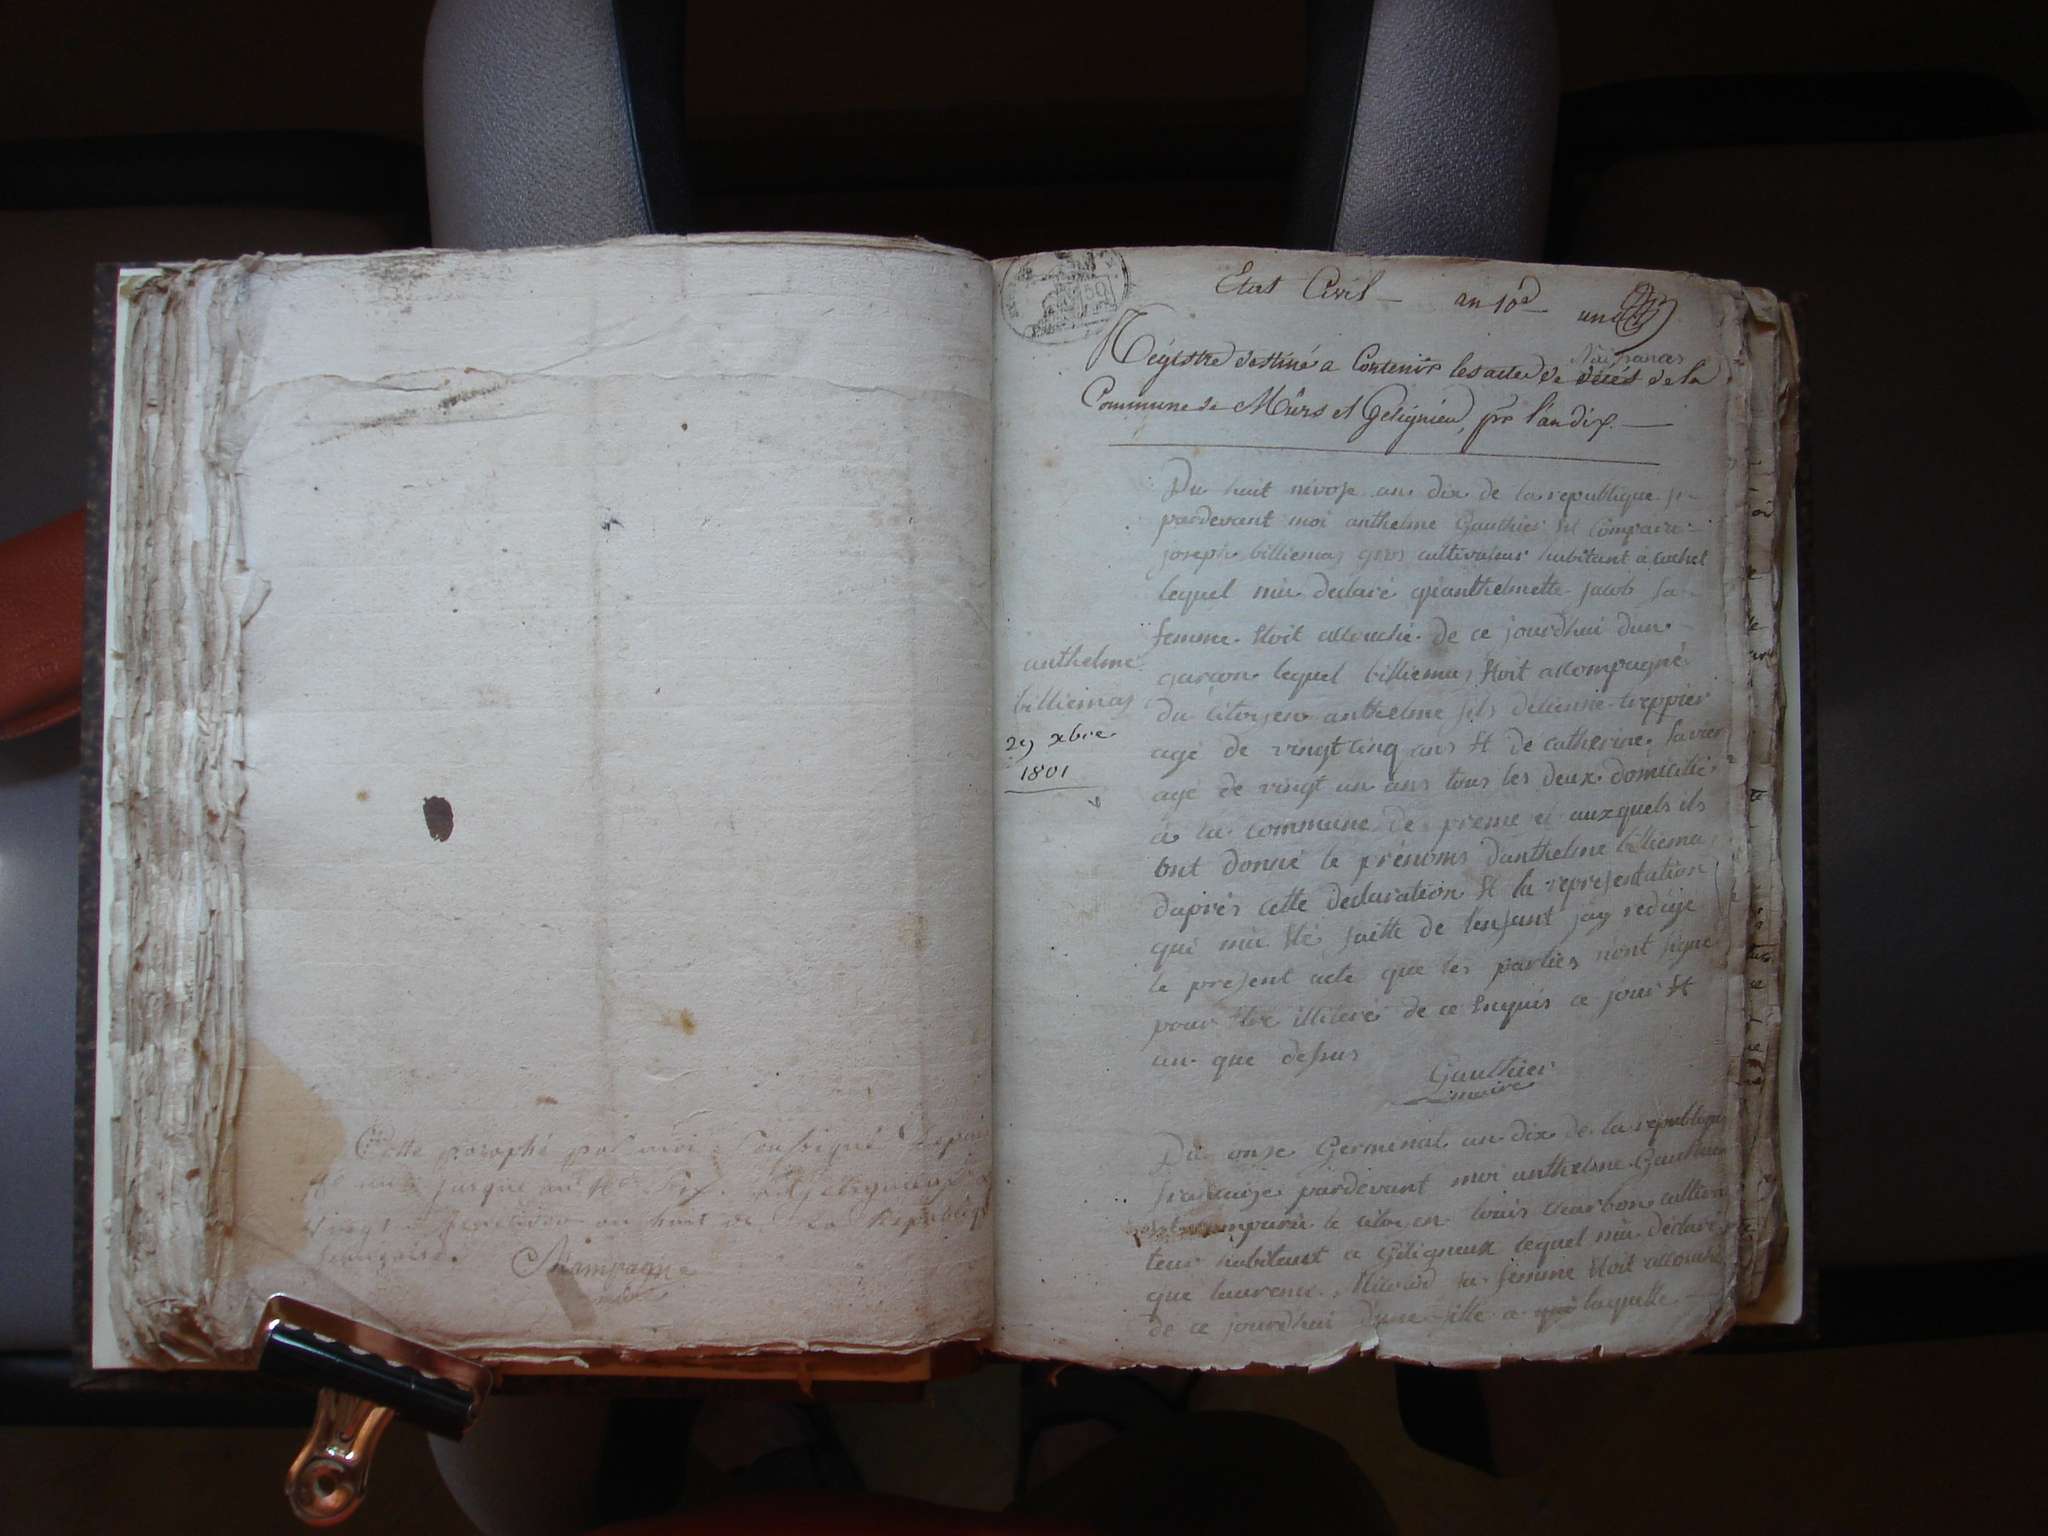 Cotté paraphé par moi soussigné depuis
vingt fructidor an huit de la Republique
française.
Champagne
Etat Civil — an 10e — un
Régistre destiné a Contenir les actes de décés Naissances de la
Commune de Mûrs et Gelignieu, pr l'an dix. —
Du huit nivose an dix de la republique f
pardevant moi anthelme Gauthier Est Comparu
joseph billiemas gros cultivateur habitant à Cachet
lequel m'a declaré qu'anthelmette jacob sa
femme Etoit accouché de ce jourdhui d'un
garcon lequel billiemas Etoit accompagné
du citoyen anthelme fils d'etienne treppier
agé de vingt cinq ans Et de catherine
agé de vingt un ans tous les deux domicilié
à la commune de et auxquels ils
ont donné le prénoms d'anthelme billiemas
daprès cette declaration Et la representation
qui m'a Eté faitte de l'enfant jay redigé
le present acte que les parties n'ont signé
pour Etre illiteré de ce Enquis ce jour Et
an que dessus
Gauthier
maire
anthelme
billiemas
29 xbre
1801
Du onze Germinal an dix de la republique
francaise pardevant moi anthelme Gauthier
Est comparu le citoyen louis charbon cultiva
teur habitant a Géligneux lequel m'a declaré
que laurence sa femme Etoit accouché
de ce jourdhui d'une fille a qui laquelle